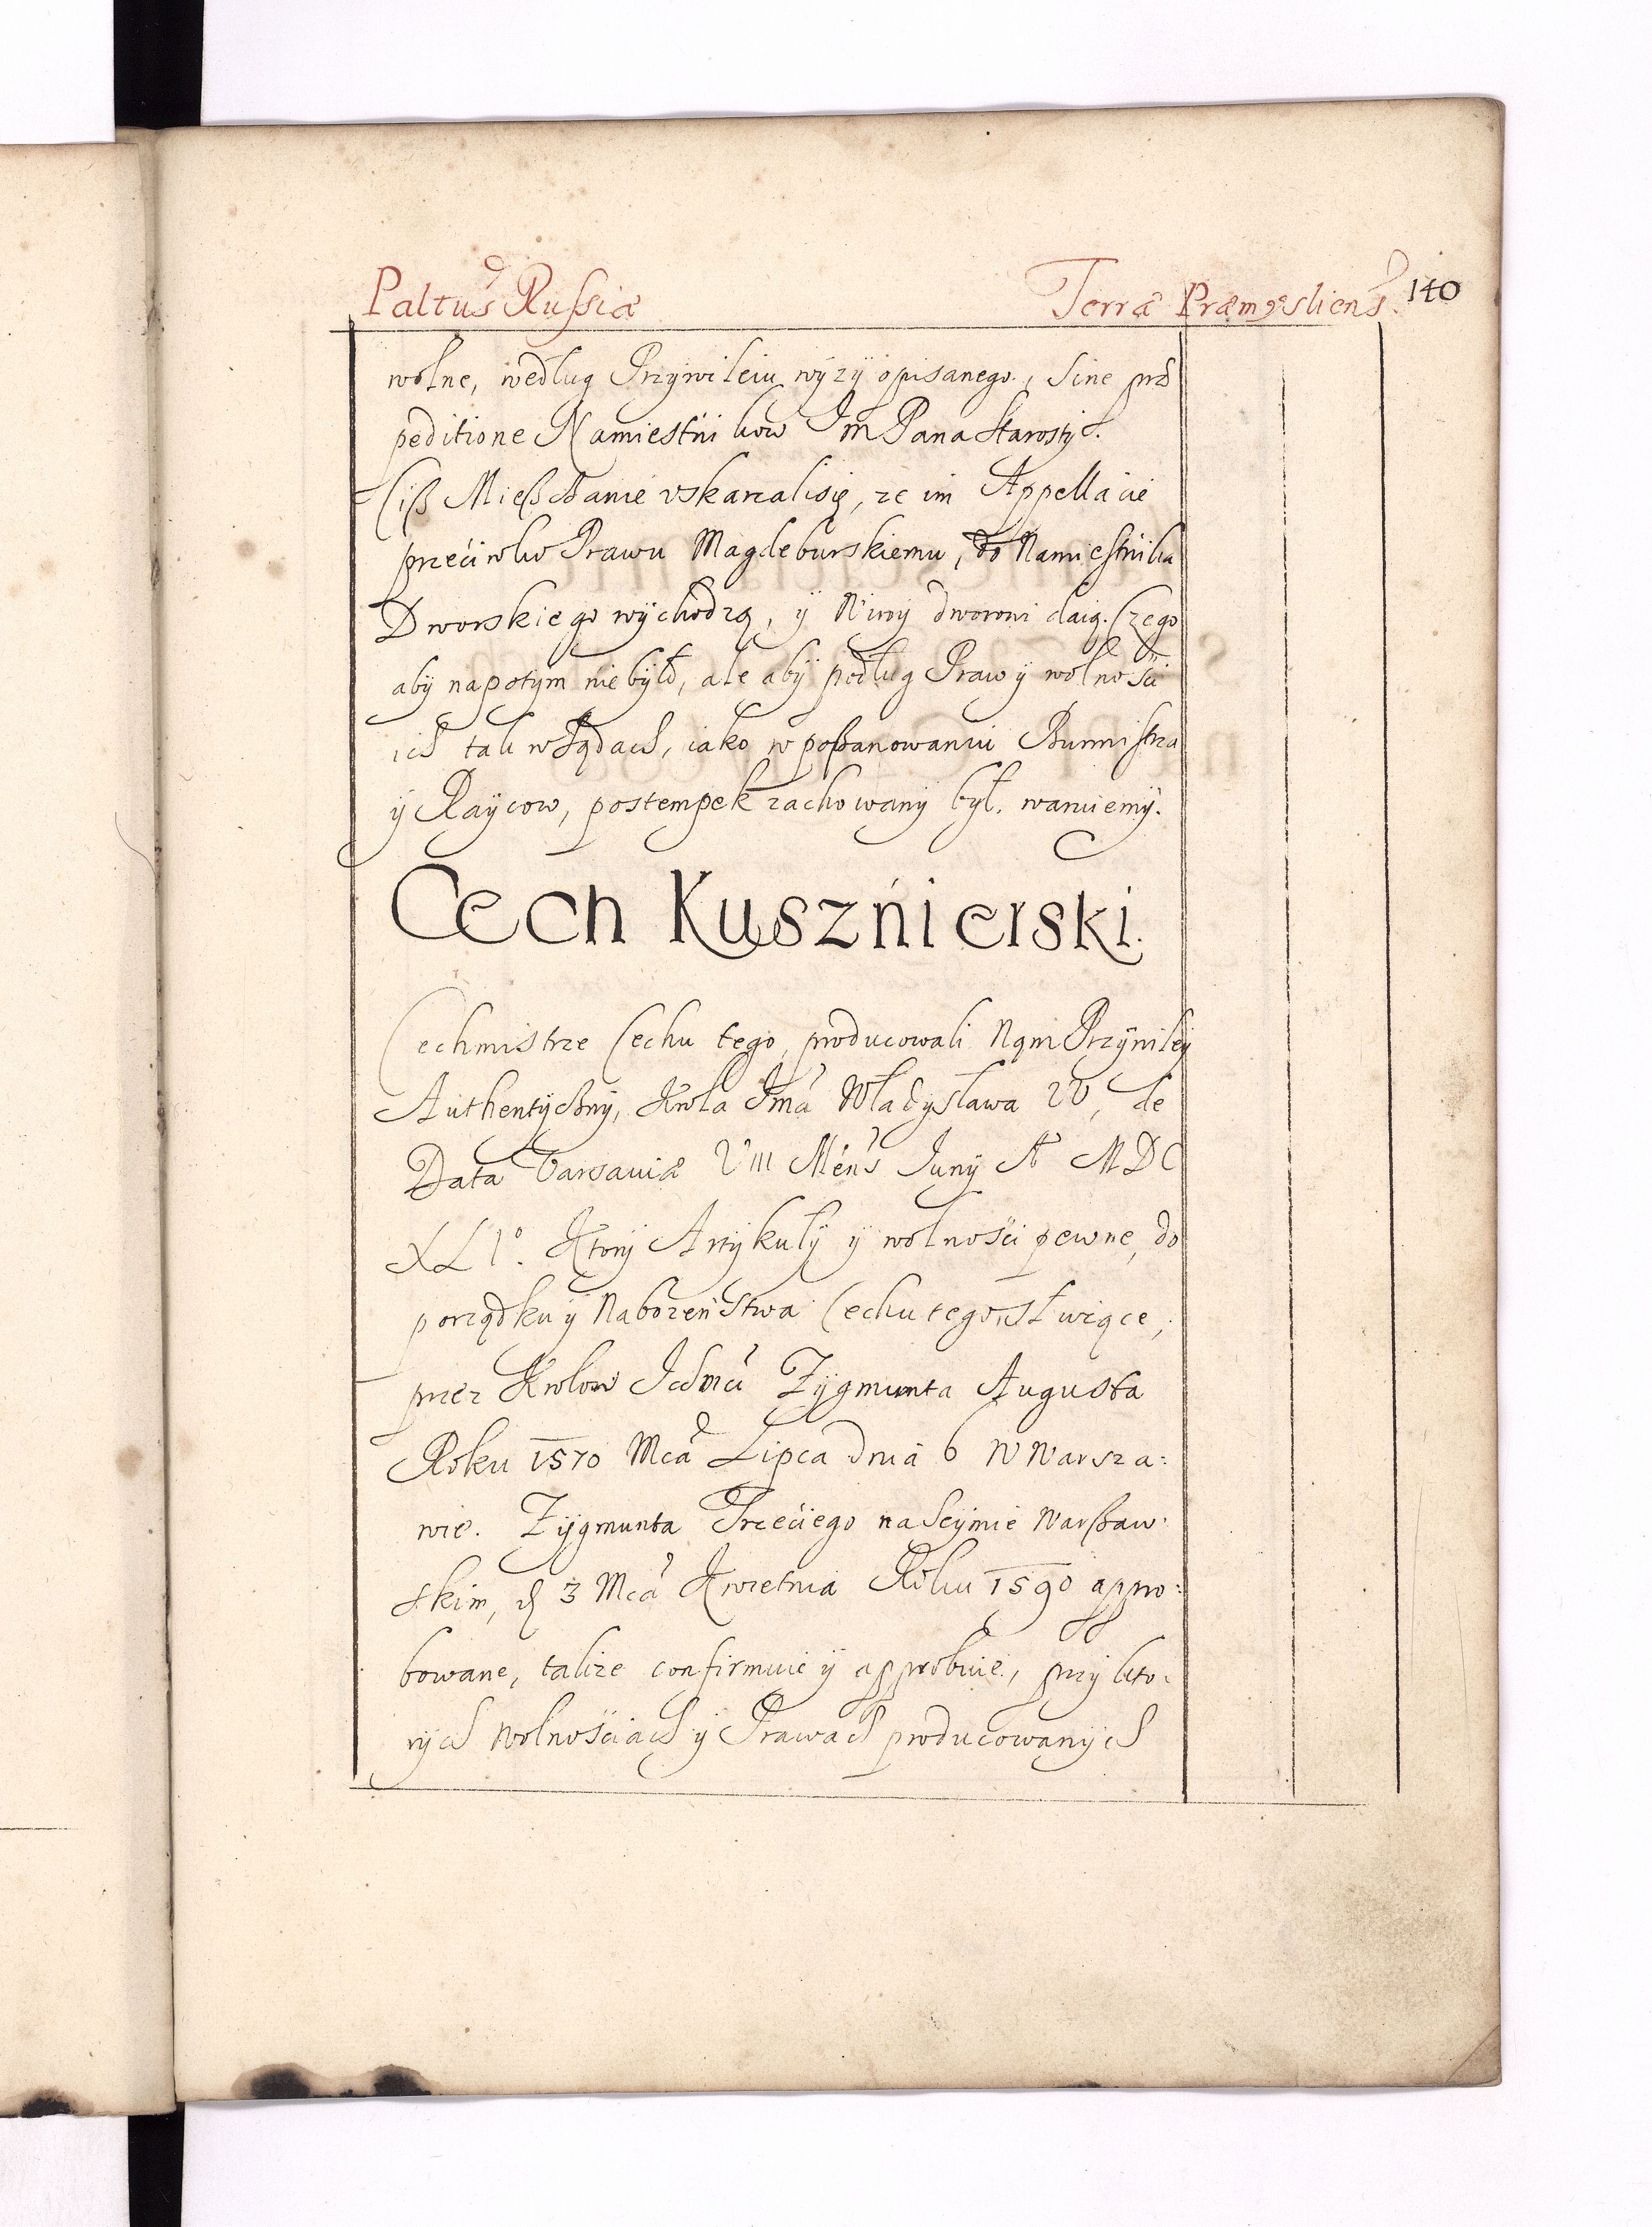 Paltus Russiæ Terræ Præmysliens. 140
wolne, według Przywileiu wyzÿ opisanego, sine præ
peditione Namiestnikow Jm Pana Starosty.
Ciß Mießczanie vskarzalisię, ze im Appellacie
przeciwko Prawu Magdeburskiemu, do Namiestnika
Dworskiego wÿchodzą, ÿ Winÿ dworowi daią. Czego
abÿ napotÿm niebyło, ale abÿ podług Praw ÿ wolnosci
ich tak w Sądach, iako w poßanowaniu Burmistrza
ÿ Raÿcow, postempek zachowanÿ był, waruiemÿ.
Cech Kuszńierski.
Cechmistrze Cechu tego, producowali Nąm Przÿwileÿ
Authentÿcznÿ, Krola Jmći Władÿsława IV, de
Data Varsaviæ VIII Mens Junÿ Aº MDC
XLIº. Ktorÿ Artÿkułÿ ÿ wolnosci pewne, do
porządku ÿ Nabozeństwa Cechu tego, słuzące,
przez Krolow Ichmći Zÿgmunta Augusta
Roku 1570 Mcā Lipca dnia 6 W Warsza:
wie. Zÿgmunta Trzeciego na Seÿmie Warßaw:
skim, d 3 Mcā Kwietnia Roku 1590 appro:
bowane, takze confirmuie ÿ approbuie, przÿ kto:
rÿch wolnosciach ÿ Prawach producowanÿch